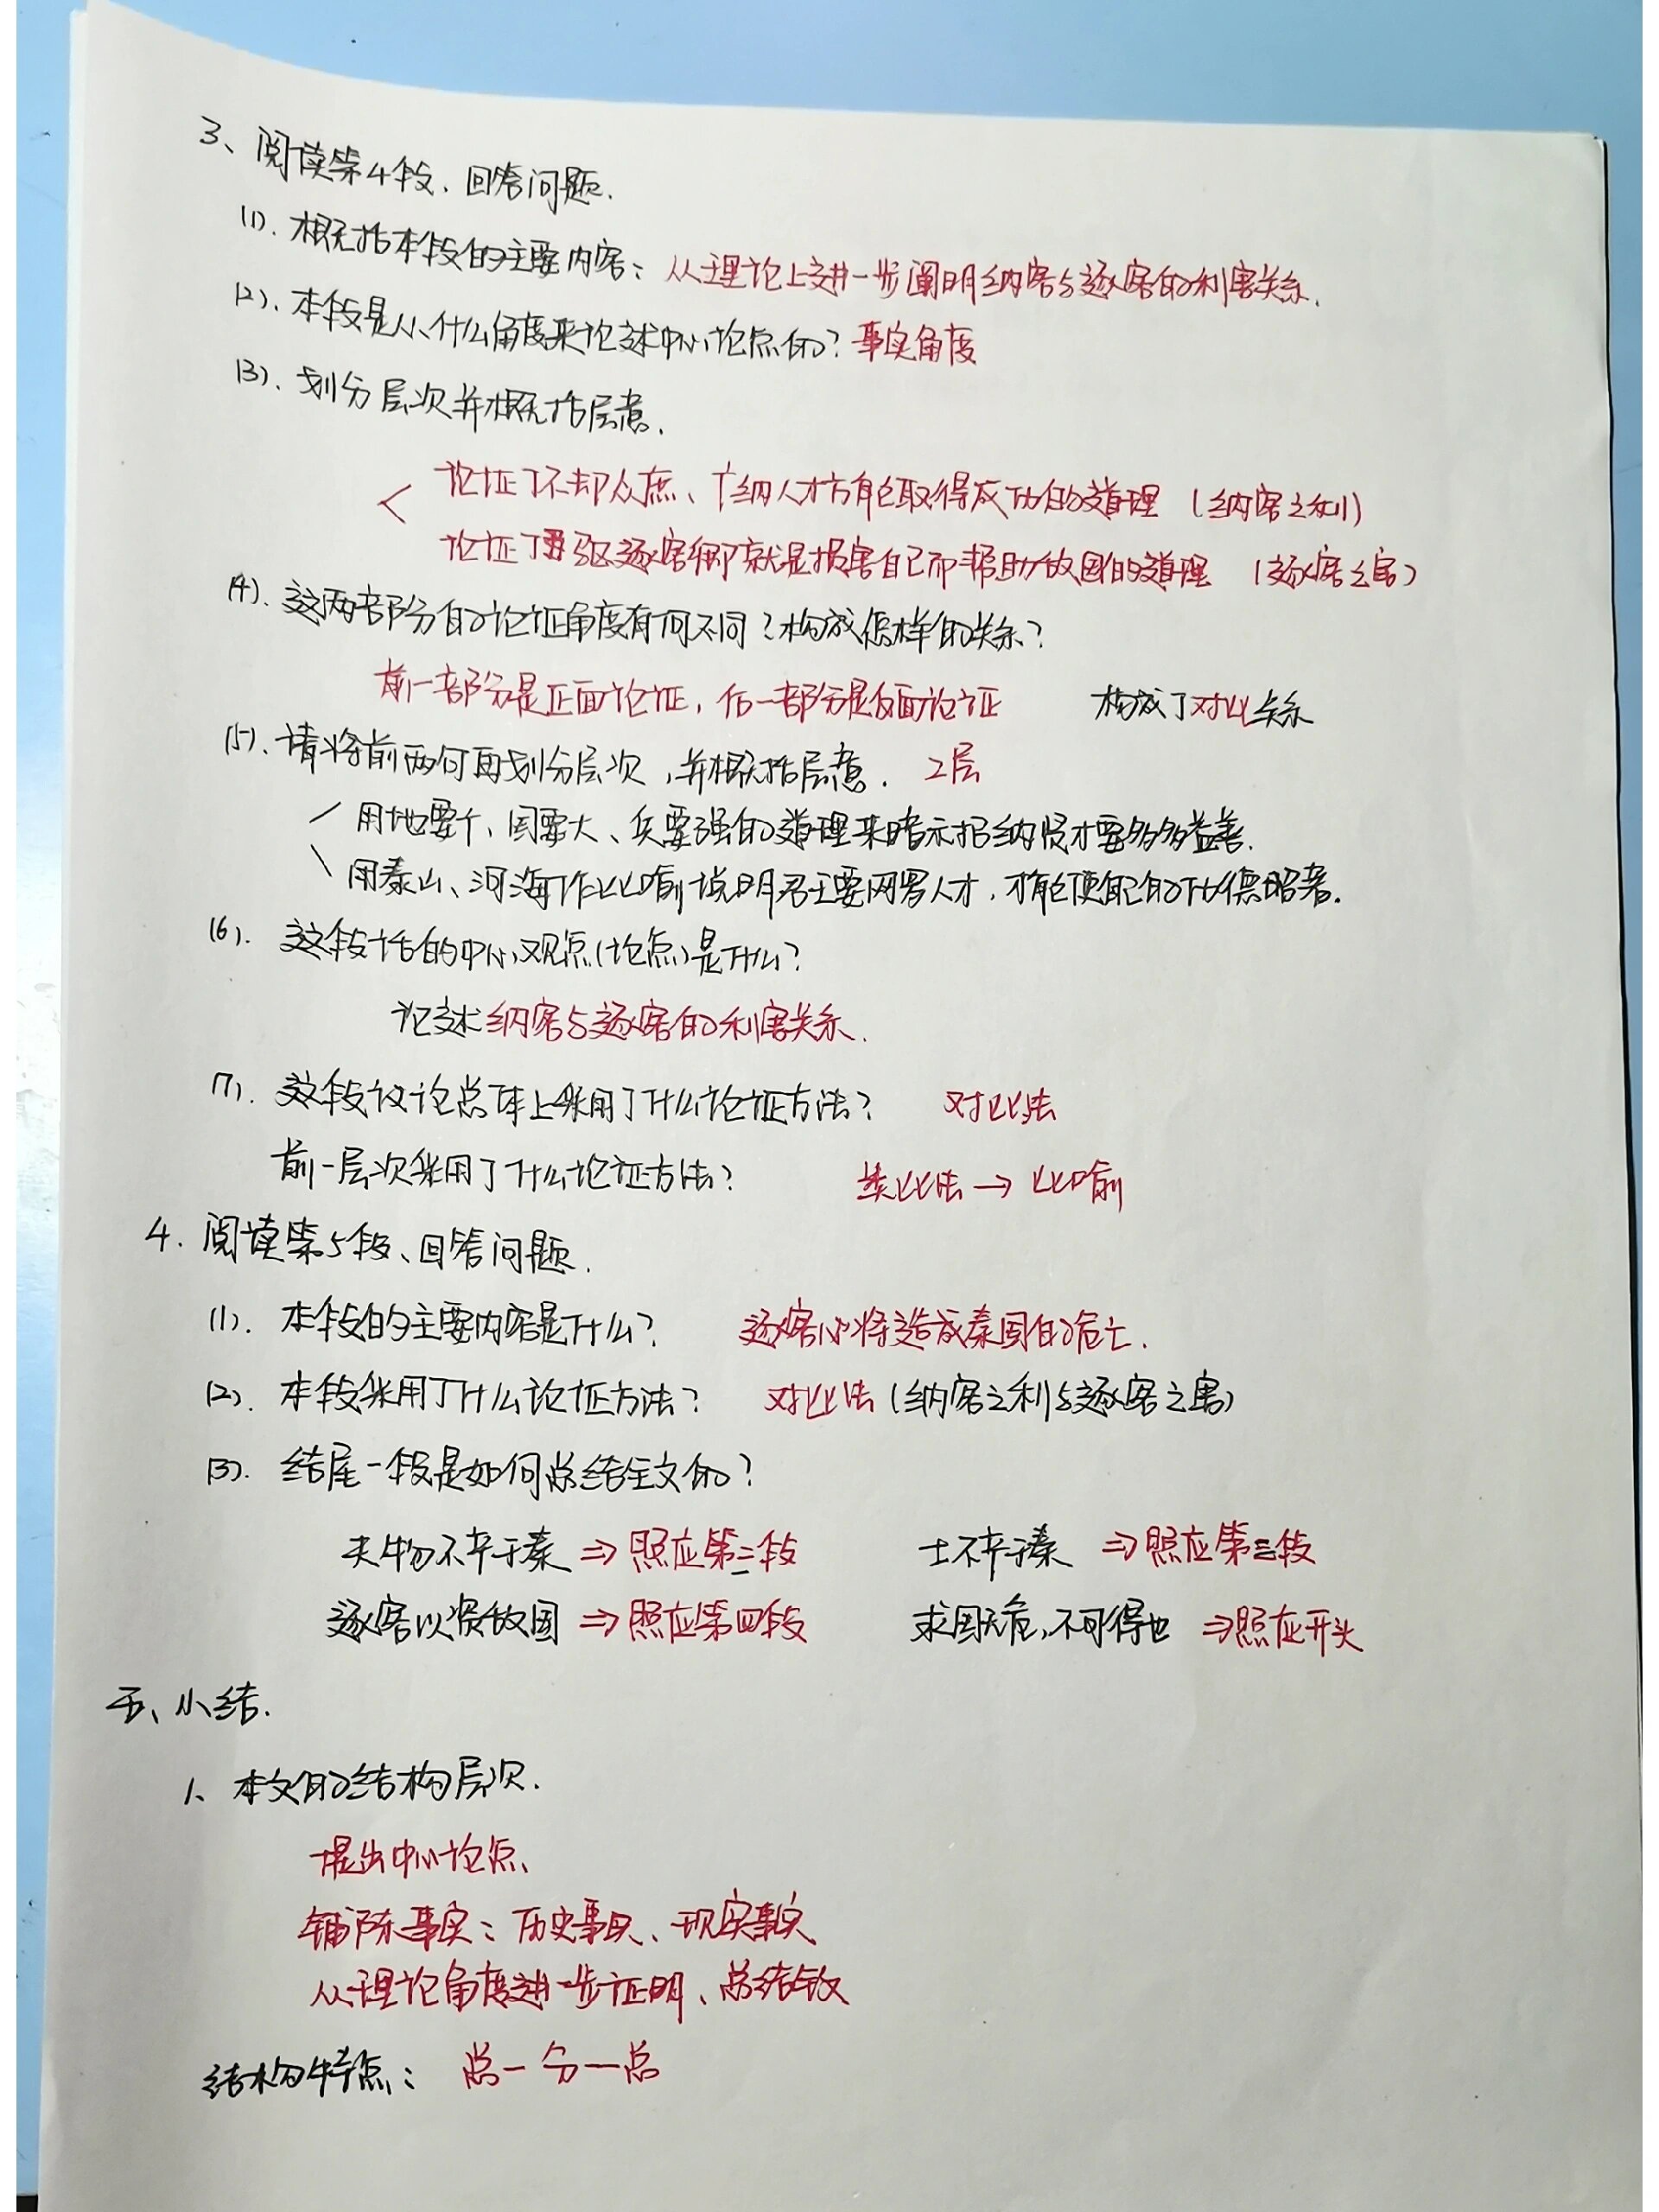 3、阅读第4段、回答问题.
(1). 概括本段的主要内容：从理论上进一步阐明纳客与逐客的利害关系.
(2). 本段是从什么角度来论述中心论点的？事实角度
(3). 划分层次并概括层意.
论证了不却众庶、广纳人才方能取得成功的道理（纳客之利）
论证了驱逐客卿就是损害自己而帮助敌国的道理（逐客之害）
(4). 这两部分的论证角度有何不同？构成怎样的关系？
前一部分是正面论证，后一部分是反面论证 构成了对比关系
(5). 请将前两句再划分层次，并概括层意. 2层
用地要广、国要大、兵要强的道理来暗示招纳贤才要多多益善.
用泰山、河海作比喻说明君主要网罗人才，才能使自己的功德昭著.
(6). 这段话的中心观点(论点)是什么？
论述纳客与逐客的利害关系.
(7). 这段议论总体上采用了什么论证方法？ 对比法
前一层次采用了什么论证方法？ 类比法→比喻
4. 阅读第5段、回答问题.
(1). 本段的主要内容是什么？ 逐客必将造成秦国的危亡.
(2). 本段采用了什么论证方法？ 对比法（纳客之利与逐客之害）
(3). 结尾一段是如何总结全文的？
夫物不产于秦⇒照应第三段 士不产于秦⇒照应第二段
逐客以资敌国⇒照应第四段 求国无危，不可得也⇒照应开头
五、小结.
1、本文的结构层次.
提出中心论点、
铺陈事实：历史事实、现实事实
从理论角度进一步证明、总结全文
结构特点：总一分一总